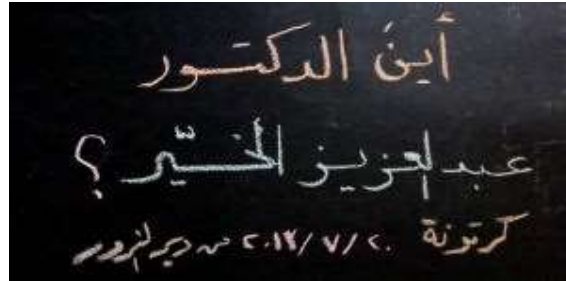 أينَ الدكتور
عبد العزيز الخيّر ؟
كرتونة ٢٠/٧/٢٠١٣ من دير الزور